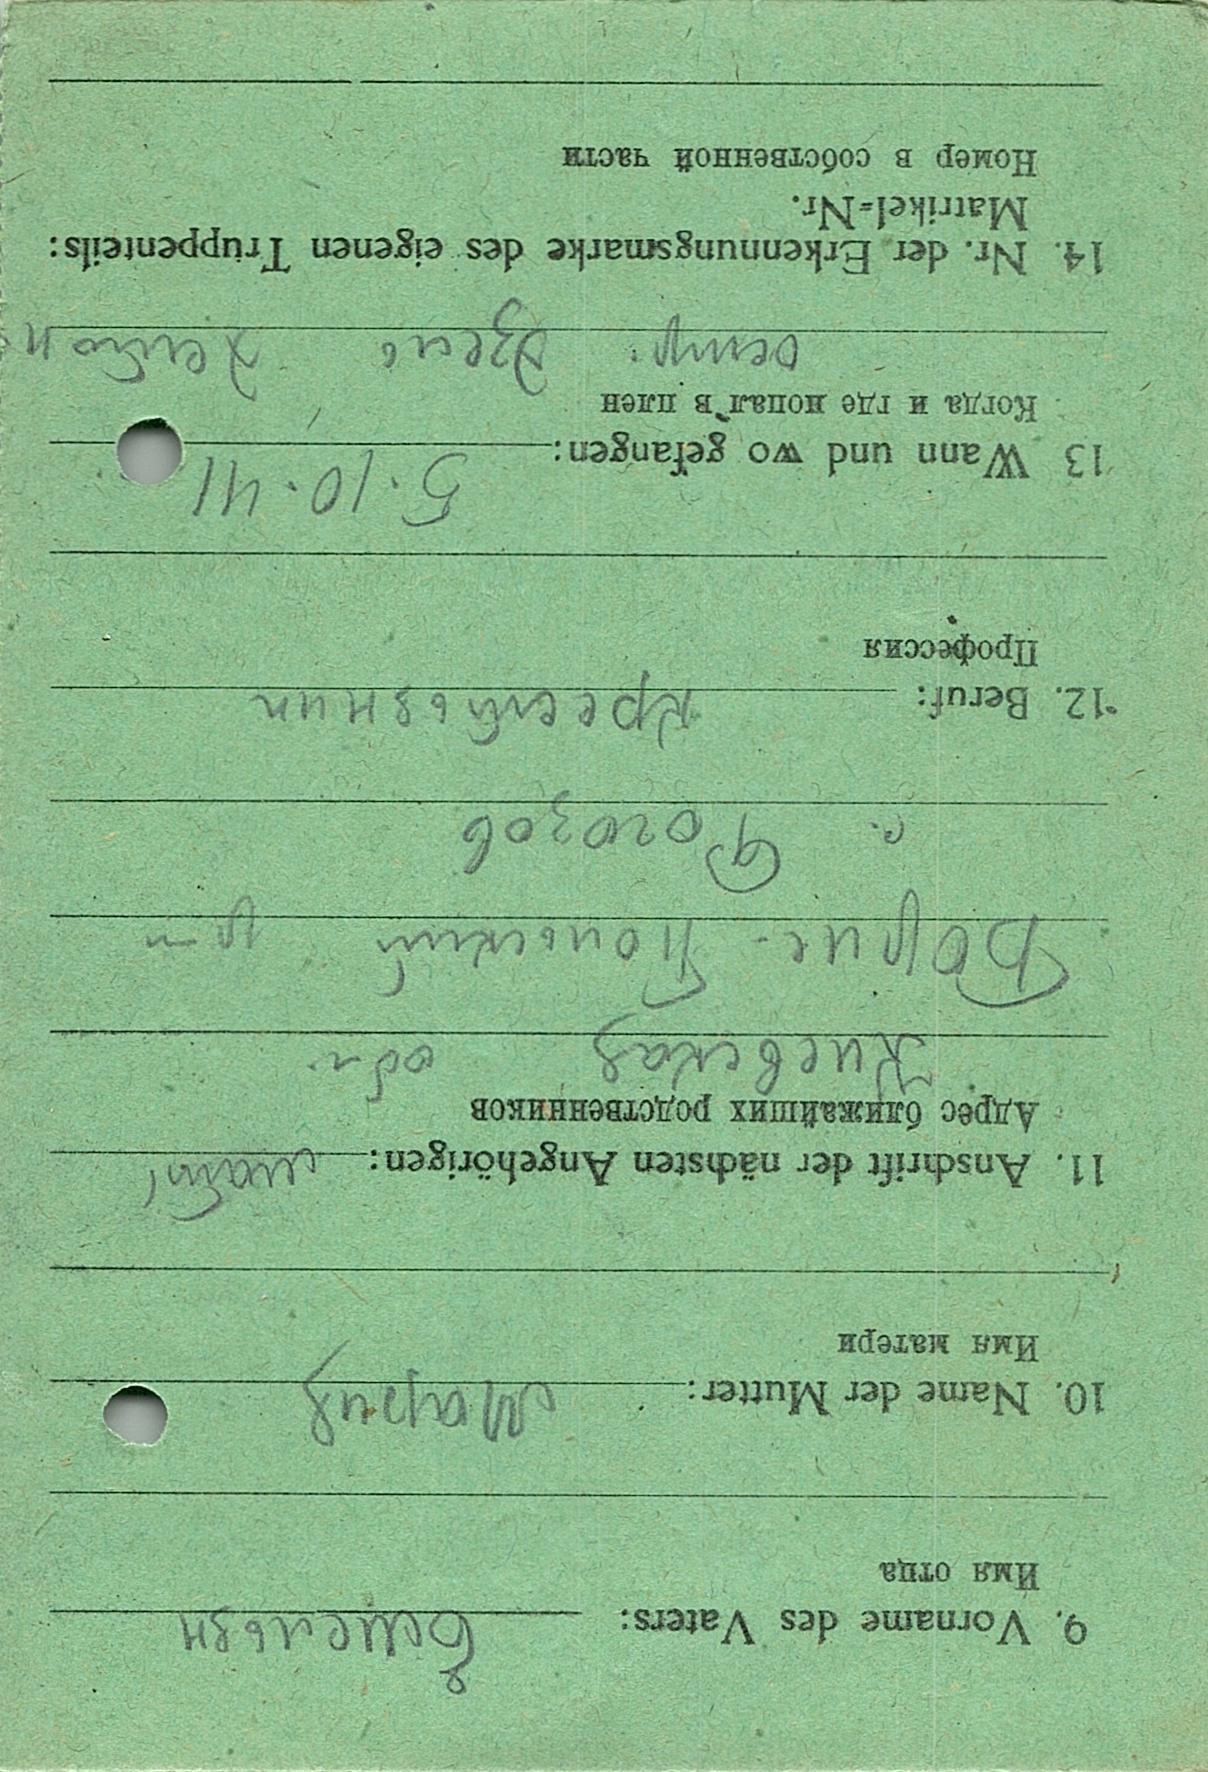 9. Vorname des Vaters: Емельян
Имя отца
10. Name der Mutter: Мария
Имя матери
11. Anschrift der nächsten Angehörigen: мать
Адрес ближайших родственников
Киевская обл.
Борис-Польский р-н
с. Рогозов
12. Beruf: крестьянин
Профессия
13 Wann und wo gefangen: 5.10.41
Когда и где попал в плен
остр.
14. Nr. der Erkennungsmarke des eigenen Truppenteils:
Matrikel-Nr.
Номер в собственной части